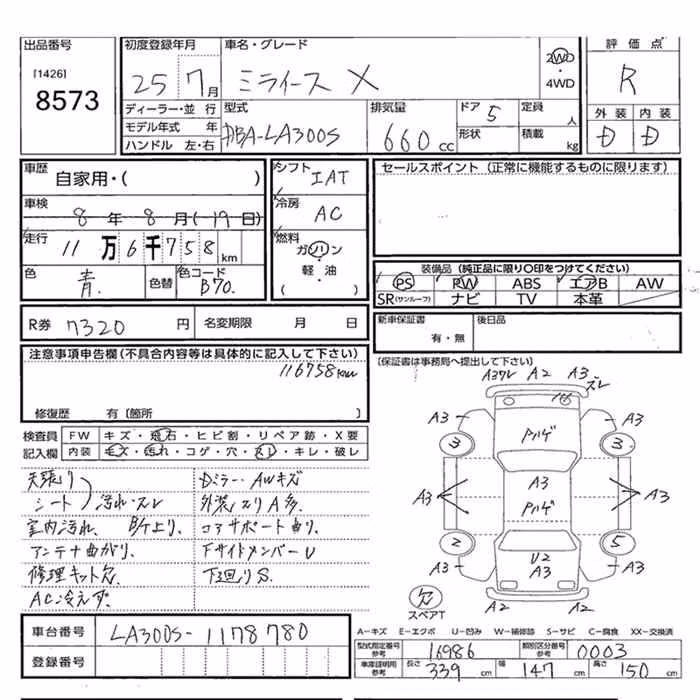 出品番号
[1426]
8573
初度登録年月
25 7月
車名・グレード
ミライース X
2WD
・
4WD
評価点
R
外装 内装
D D
ディーラー・並 行
モデル年式 年
ハンドル 左・右
型式
DBA-LA300S
排気量
660 cc
ドア 5
形状
定員 人
積載 kg
車歴
自家用・( )
車検
8年 8月 (19日)
走行
11万6千758km
色
青.
色替
色コード
B70.
シフト
IAT
冷房
AC
燃料
ガソリン
・
軽・油
( )
セールスポイント (正常に機能するものに限ります)
装備品 (純正品に限り〇印をつけてください)
PS PW ABS エアB AW
SR(サンルーフ) ナビ TV 本革
R券 7320 円 名変期限 月 日
新車保証書
有・無
後日品
注意事項申告欄(不具合内容等は具体的に記入して下さい)
116758km
修復歴 有〔箇所 〕
〔保証書は事務局へ提出して下さい〕
検査員 FW キズ・飛石・ヒビ割・リペア跡・X要
記入欄 内装 キズ・汚れ・コゲ・穴・スレ・キレ・破レ
天張り
シート 汚れ・スレ
室内汚れ、
アンテナ曲がり、
修理キット欠
AC冷えず.
Dミラー・AWキズ
外装スリA多
コアサポート曲り、
FサイドメンバーU
下回りS.
A3ワレ A2 A3 スレ
A3 A3
Pハゲ
3 3
A3
A3 A3
Pハゲ
2 5
U2
A3
A3 A3
A2 A2
欠
スペアT
車台番号 LA300S-1178780
登録番号
A-キズ E-エクボ U-凹み W-補修跡 S-サビ C-腐食 XX-交換済
型式指定番号 参考 16986 類別区分番号 参考 0003
車庫証明用 参考 長さ 339 cm 幅 147 cm 高さ 150 cm